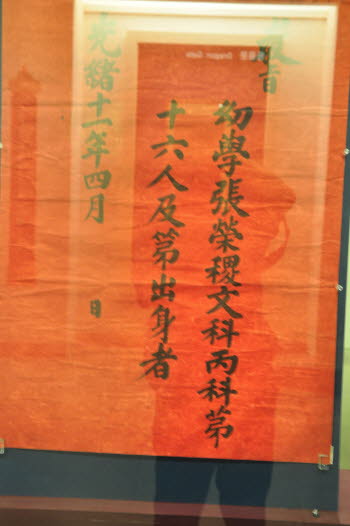 敎旨
幼學張榮稷文科丙科第
十六人及第出身者
光緖十一年四月 日